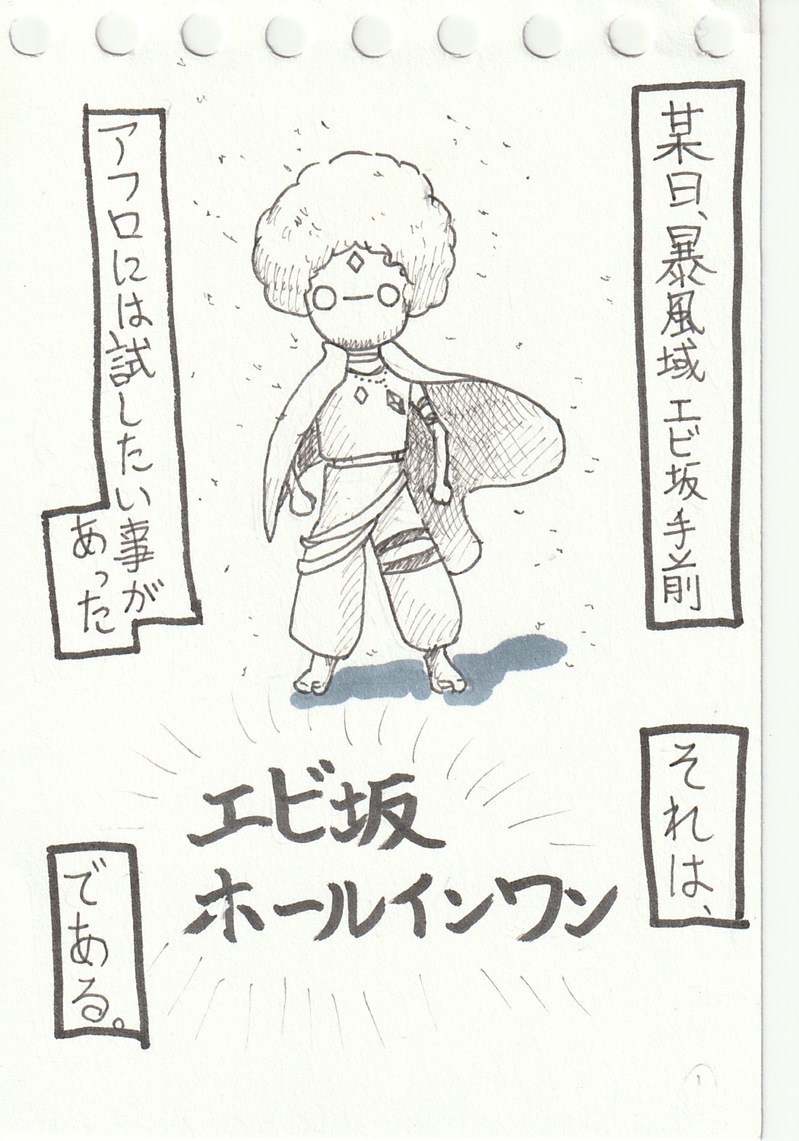 某日、暴風域 エビ坂手前
アフロには試したい事が
あった
それは、
エビ坂
ホールインワン
である。
1